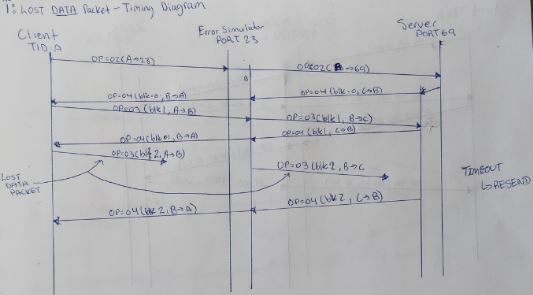 1: LOST DATA Packet - Timing Diagram
Client
TID: A
Error Simulator
PORT 23
Server
PORT 69
OP=02(A→23)
OP=02( →69)
B
OP=04(blk=0, B→A)
OP=04(blk=0, C→B)
OP=03(blk1, A→B)
OP=03(blk1, B→C)
OP=04(blk1, C→B)
OP=04(blk, B→A)
OP=03(blk2, A→B)
OP=03(blk2, B→C
LOST
DATA
PACKET
TIMEOUT
↳RESEND
OP=04(blk2, B→A)
OP=04(blk2, C→B)